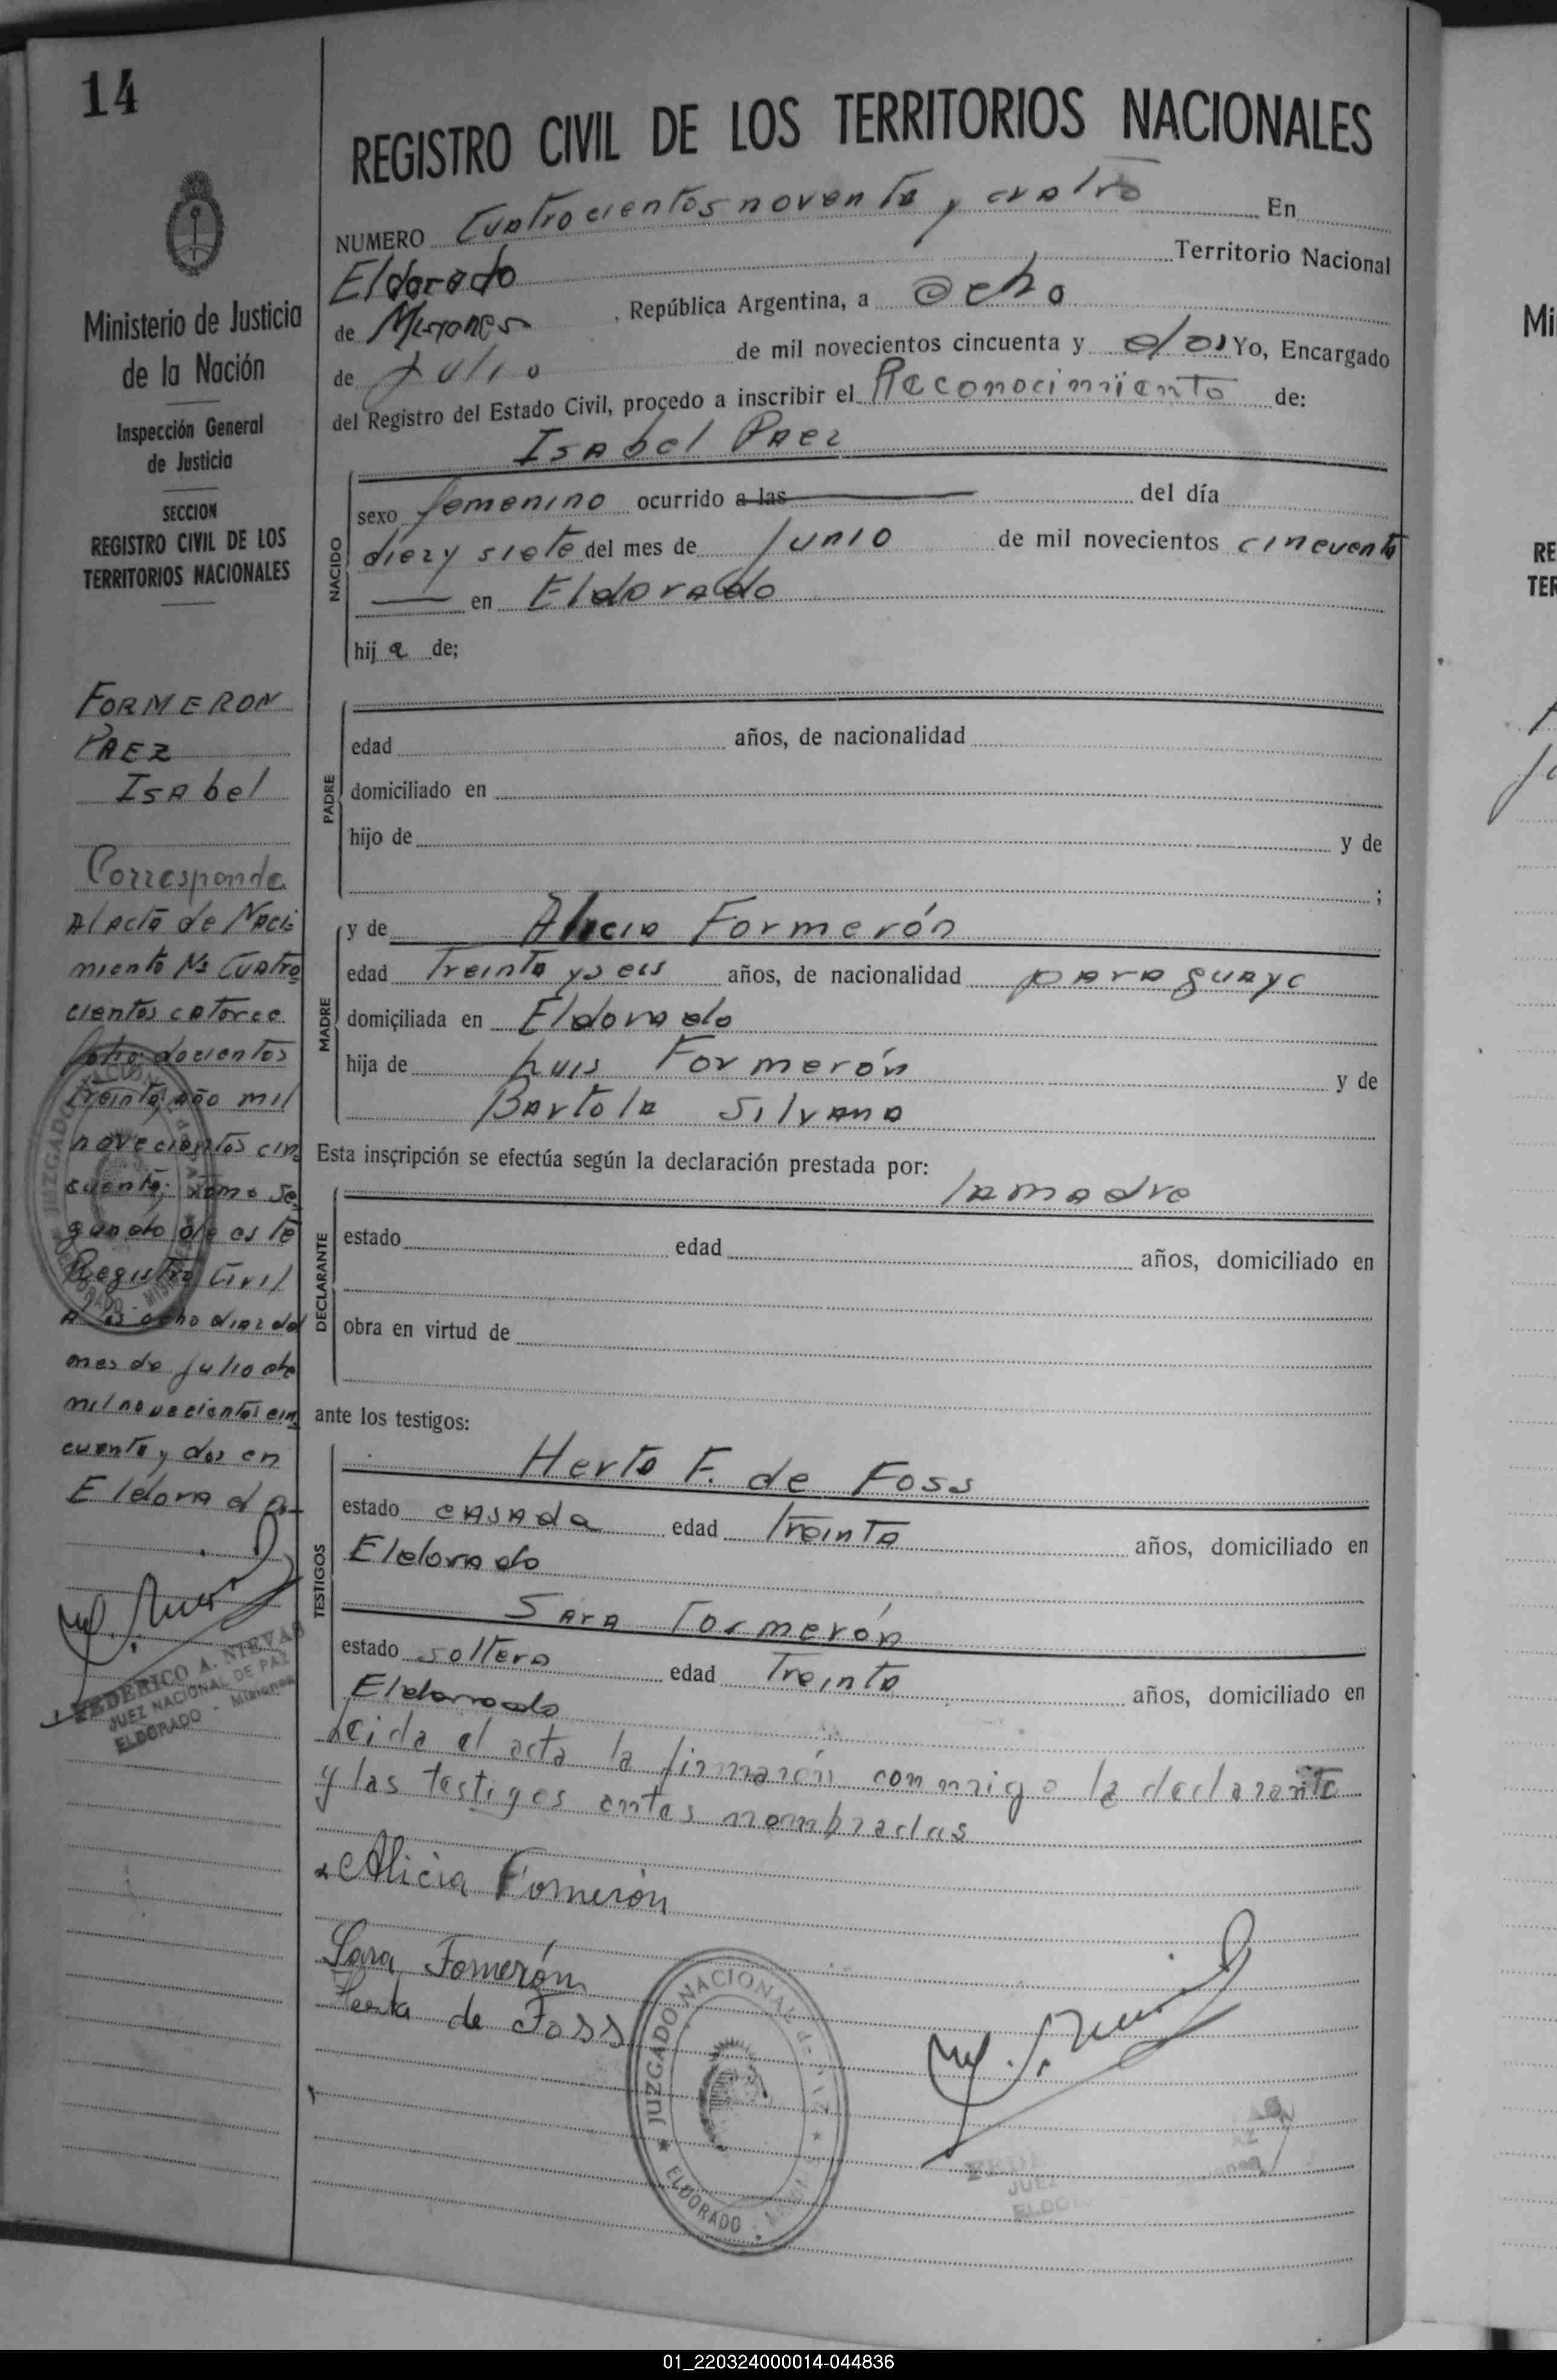 14
Ministerio de Justicia
de la Nación
Inspección General
de Justicia
SECCION
REGISTRO CIVIL DE LOS
TERRITORIOS NACIONALES
FORMERON
PAEZ
Isabel
Corresponde
al acta de Naci
miento Nº Cuatro
cientos catorce
folio docientos
treinta, año mil
novecientos cin
cuenta; tomo se
gundo de este
Registro Civil
A los ocho dias del
mes de julio de
mil novecientos cin
cuenta y dos en
Eldorado.
FEDERICO A. NIEVAS
JUEZ NACIONAL DE PAZ
ELDORADO - Misiones
REGISTRO CIVIL DE LOS TERRITORIOS NACIONALES
NUMERO Cuatrocientos noventa y cuatro En
Eldorado Territorio Nacional
de Misiones, República Argentina, a ocho
de Julio de mil novecientos cincuenta y dos Yo, Encargado
del Registro del Estado Civil, procedo a inscribir el Reconocimiento de:
Isabel Paez
NACIDO
sexo femenino ocurrido a las del día
diez y siete del mes de Junio de mil novecientos cincuenta
en Eldorado
hija de;
PADRE
edad años, de nacionalidad
domiciliado en
hijo de y de
;
MADRE
y de Alicia Formerón
edad Treinta y seis años, de nacionalidad paraguaya
domiciliada en Eldorado
hija de Luis Formerón y de
Bartola Silvana
Esta inscripción se efectúa según la declaración prestada por:
la madre
DECLARANTE
estado edad años, domiciliado en
obra en virtud de
ante los testigos:
TESTIGOS
Herta F. de Foss
estado casada edad Treinta años, domiciliado en
Eldorado
Sara Formerón
estado soltera edad Treinta años, domiciliado en
Eldorado
Leida el acta la firmarón conmigo la declarante
y las testigos antes nombradas
Alicia Fomerón
Sara Fomerón
Herta de Foss
JUZGADO NACIONAL de PAZ
ELDORADO
01_220324000014-044836